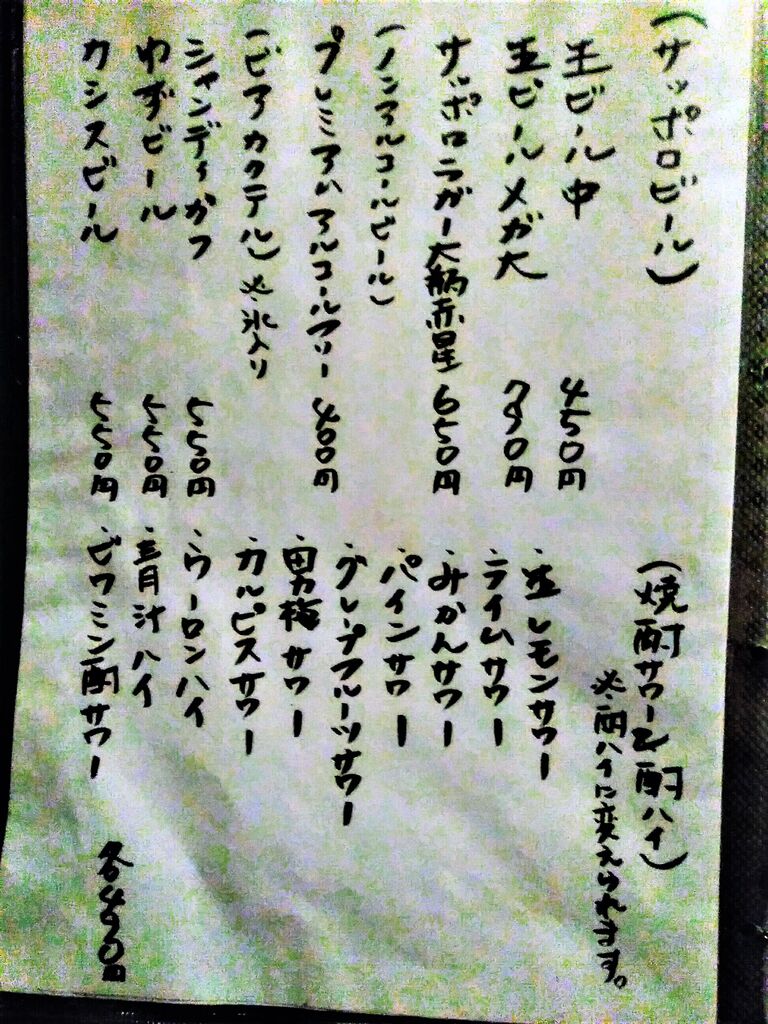 (サッポロビール)
生ビール中 450円
生ビールメガ大 790円
サッポロラガー大瓶赤星 650円
(ノンアルコールビール)
プレミアムアルコールフリー 400円
(ビアカクテル) ※氷入り
シャンディーガフ 550円
ゆずビール 550円
カシスビール 550円
(焼酎サワー&酎ハイ)
※酎ハイに変えられます。
・生レモンサワー
・ライムサワー
・みかんサワー
・パインサワー
・グレープフルーツサワー
・男梅サワー
・カルピスサワー
・ウーロンハイ
・青汁ハイ
・ビタミン酎サワー
各490円